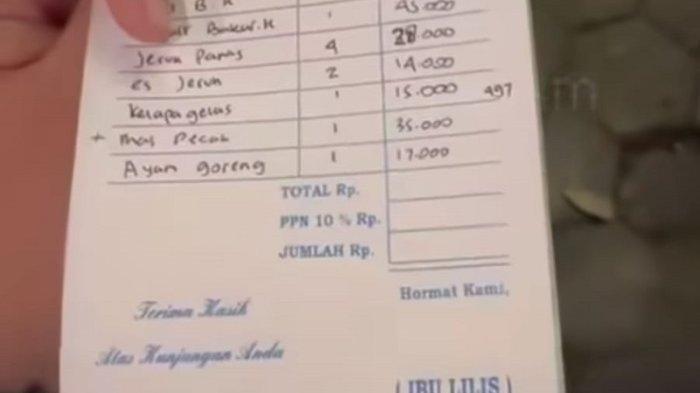 B.K 1 45.000
Bakar.K 1 28.000
Jerun Panas 4 28.000
es Jerun 2 14.000
Kelapa gelas 1 15.000 497
+ mas Pecak 1 35.000
Ayam goreng 1 17.000
TOTAL Rp.
PPN 10 % Rp.
JUMLAH Rp.
Hormat Kami,
Terima Kasih
Atas Kunjungan Anda
( IBU LILIS )